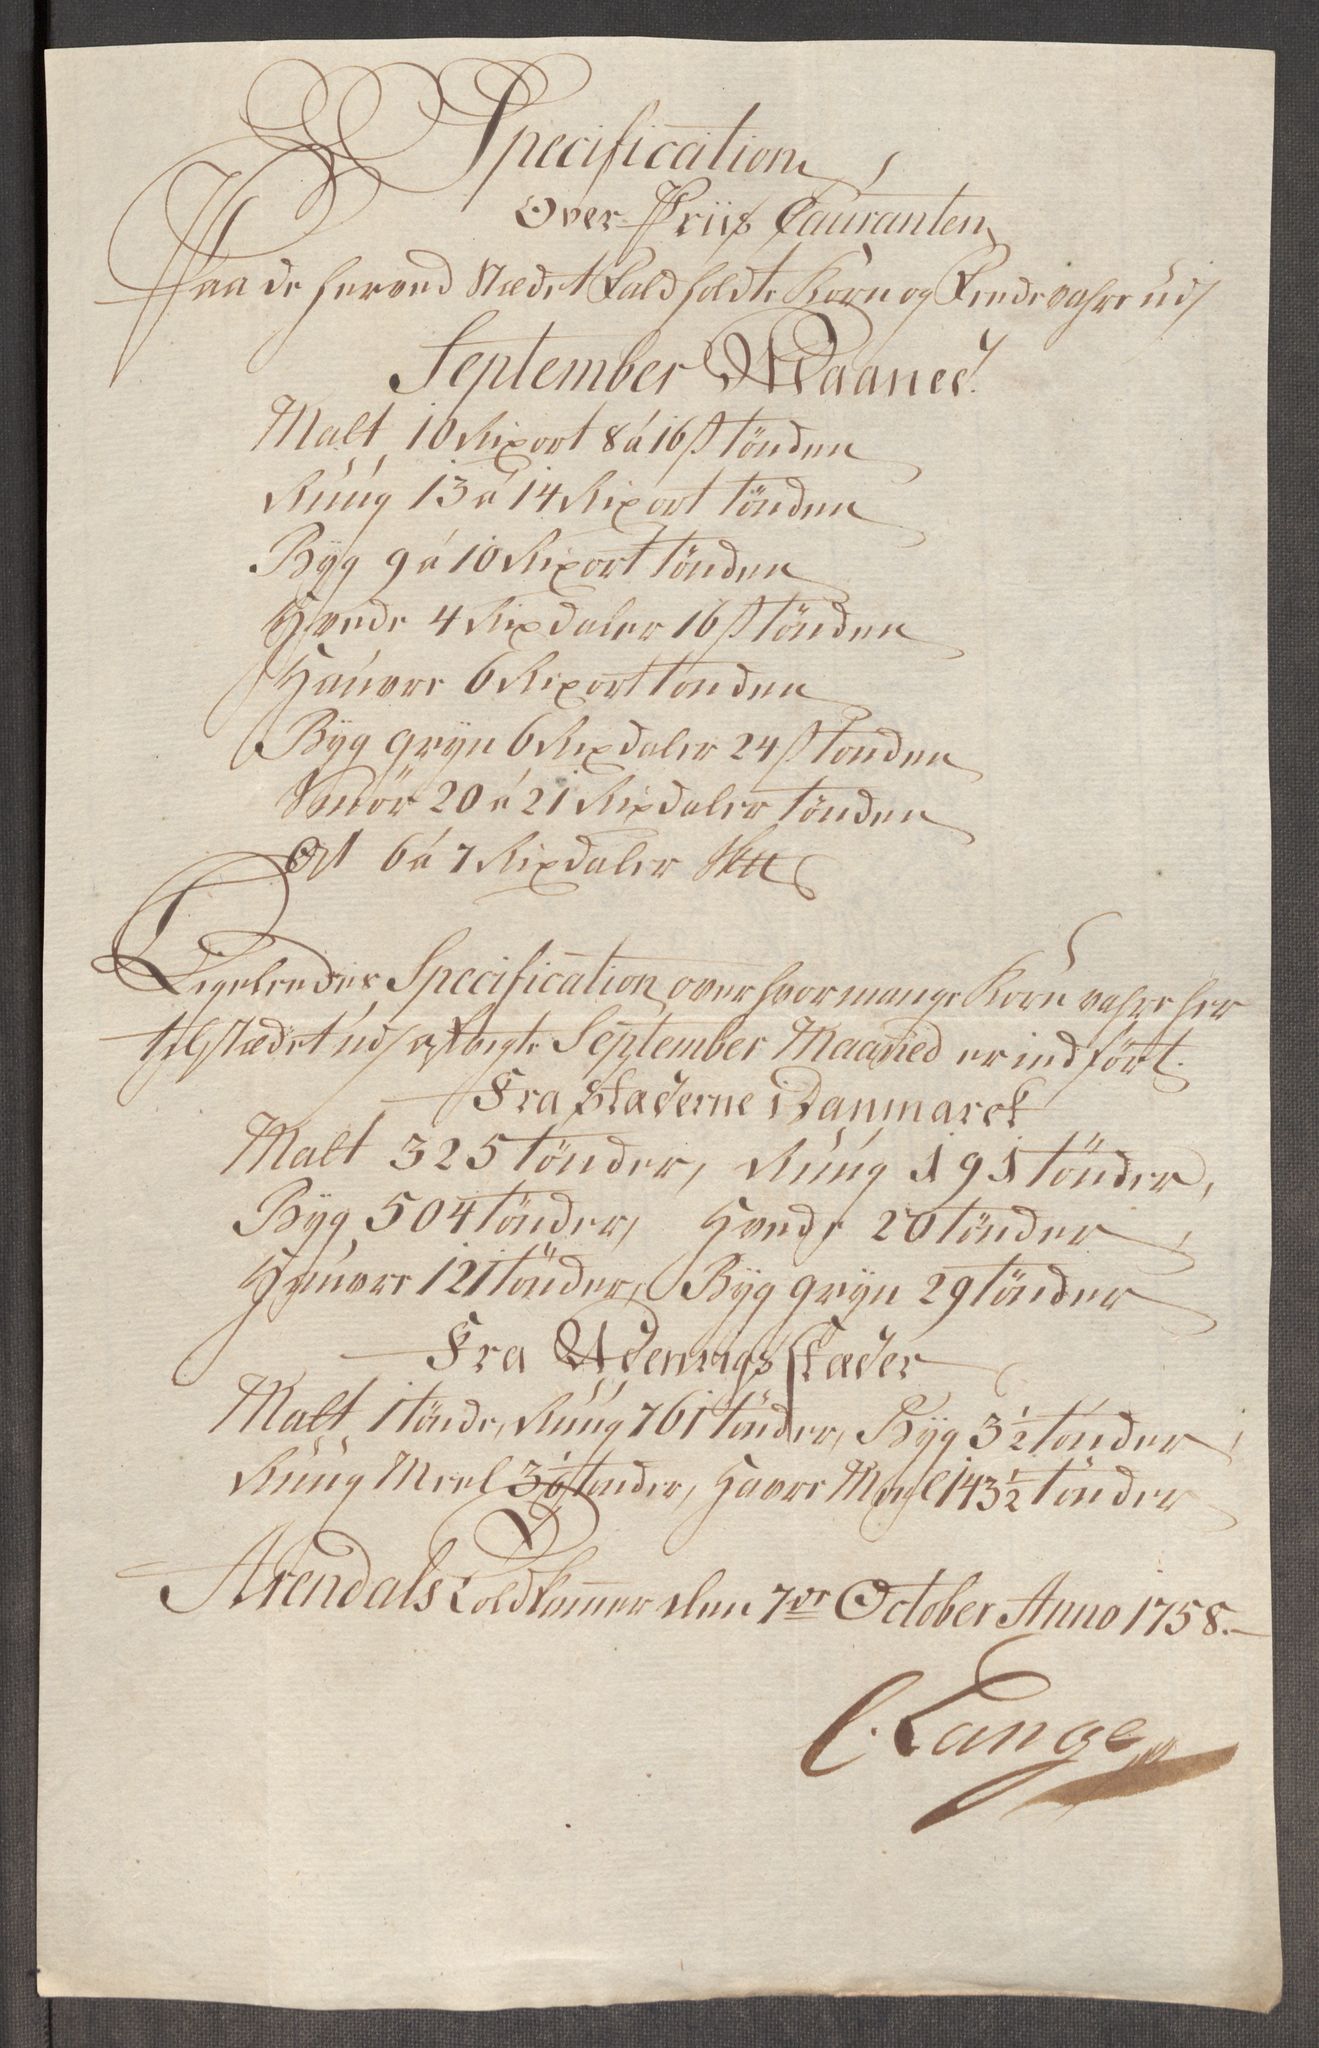 Specification
Over Priis Couranten
Paa de herved Stædet Faldholdte Korn og Fede vahre udj
September Maaned.
Malt 10 Rixort 8 á 16 s tönden
Rúúg 13 á 14 Rixort tönden
Bÿg 9 á 10 Rixort tönden
Hvede 4 Rixdaler 16 s tönden
Haúvre 6 Rixort tönden
Bÿg grÿn 6 Rixdaler 24 s tönden
Smör 20 á 21 Rixdaler tönden
Ost 6 á 7 Rixdaler
Ligeleedes Specification over hvor mange Korn vahre her
til Stædet udj September Maaned er indfört.
Fra Stæderne i Danmarck
Malt 325 tönder, Rúúg 191 tönder,
Bÿg 504 tönder, Hvede 20 tönder
Haúvre 121 tönder, Bÿg grÿn 29 tönder
Fra Udenrigs Stæder
Malt 1 tönde, Rúúg 761 tönder, Bÿg 3 1/2 tönder
Rúúg Meel tönder, Havre Meel 143 1/2 tönder
Arendals Toldkammer den 7de October Anno 1758.
C. Lange